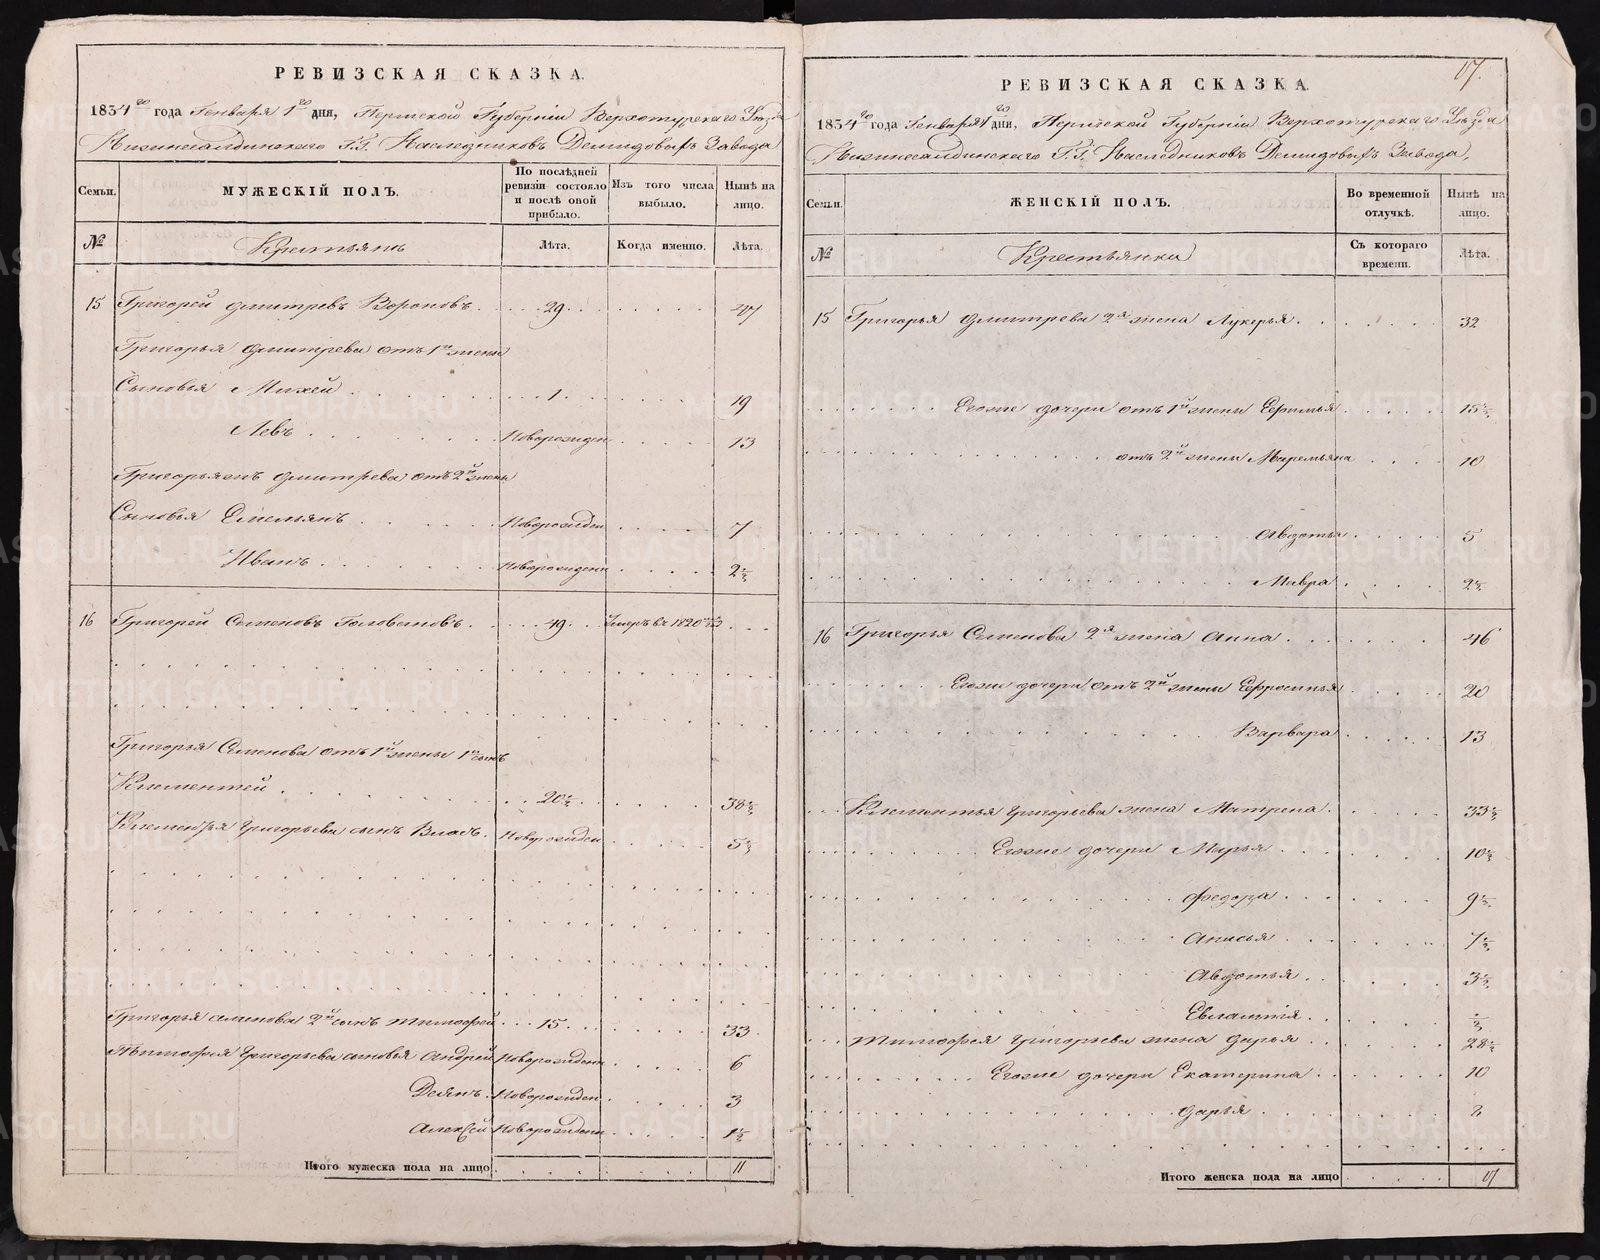 РЕВИЗСКАЯ СКАЗКА.
1834го года Генваря 1го дня, Пермской Губернiи Верхотурскаго Уезда
Нижнесалдинскаго Г.Г. Наследниковъ Демидовыхъ Завода
Семьи. МУЖЕСКIЙ ПОЛЪ. По послѣдней ревизiи состояло и послѣ оной прибыло. Изъ того числа выбыло. Нынѣ на лицо.
№ Крестьянъ Лѣта. Когда именно. Лѣта.
15 Григорей Дмитревъ Вороновъ 29 47
Григорья Дмитрева отъ 1й жены
Сыновья Михей 1 19
Левъ Новорожден 13
Григорья жъ Дмитрева отъ 2й жены
Сыновья Емельянъ Новорожден 7
Иванъ Новорожден 2½
16 Григорей Семеновъ Головановъ 49 Умеръ въ 1820
Григорья Семенова отъ 1й жены 1й сынъ
Климентей 20½ 38½
Климентья Григорьева сынъ Власъ Новорожден 5½
Григорья Семенова 2й сынъ Тимофей 15 33
Тимофея Григорьева сыновья Андрей Новорожден 6
Деянъ Новорожден 3
Алексей Новорожден 1½
Итого мужеска пола на лицо 11
РЕВИЗСКАЯ СКАЗКА.
1834го года Генваря 1го дни, Пермской Губернiи Верхотурскаго Уезда
Нижнесалдинскаго Г.Г. Наследниковъ Демидовыхъ Завода,
Семьи. ЖЕНСКIЙ ПОЛЪ. Во временной отлучкѣ. Нынѣ на лицо.
№ Крестьянки Съ котораго времени. Лѣта.
15 Григорья Дмитрева 2я жена Лукерья 32
Егоже дочери отъ 1й жены Ефимья 15½
отъ 2й жены Маремьяна 10
Авдотья 5
Мавра 2½
16 Григорья Семенова 2я жена Анна 46
Егоже дочери отъ 2й жены Ефросинья 20
Варвара 13
Климентья Григорьева жена Матрена 33½
Егоже дочери Марья 10½
Федора 9½
Анисья 7½
Авдотья 3½
Евлампiя ½
Тимофея Григорьева жена Дарья 28½
Егоже дочери Екатерина 10
Дарья 8
Итого женска пола на лицо 17
METRIKI.GASO-URAL.RU